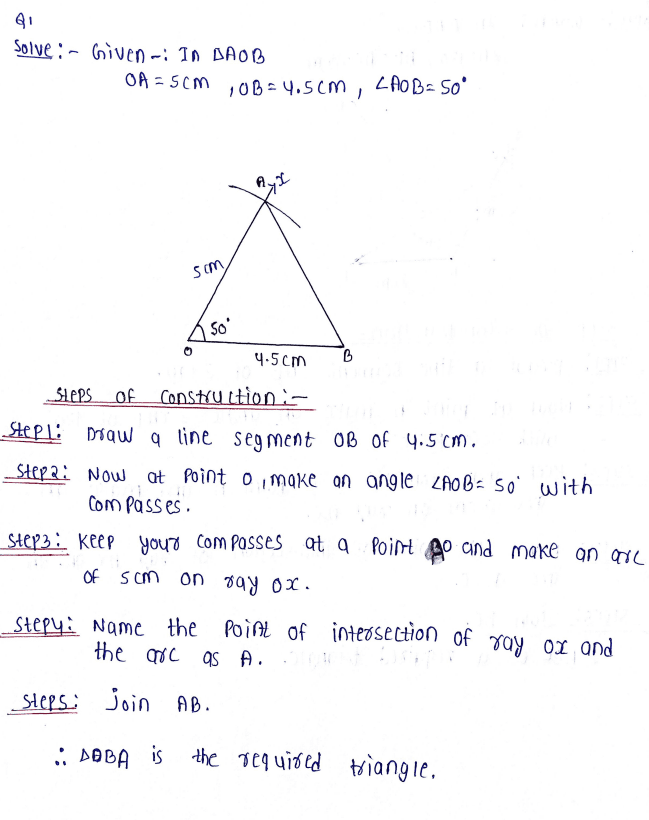 Q1
Solve:- Given -: In ΔAOB
OA = 5cm , OB = 4.5cm , ∠AOB = 50°
A x
5cm
50°
O 4.5cm B
Steps of construction :-
Step1: Draw a line segment OB of 4.5cm.
Step2: Now at Point O, make an angle ∠AOB = 50° with
Compasses.
Step3: Keep your compasses at a Point O and make an arc
of 5cm on ray ox.
Step4: Name the Point of intersection of ray ox and
the arc as A.
Step5: Join AB.
∴ ΔOBA is the required triangle.